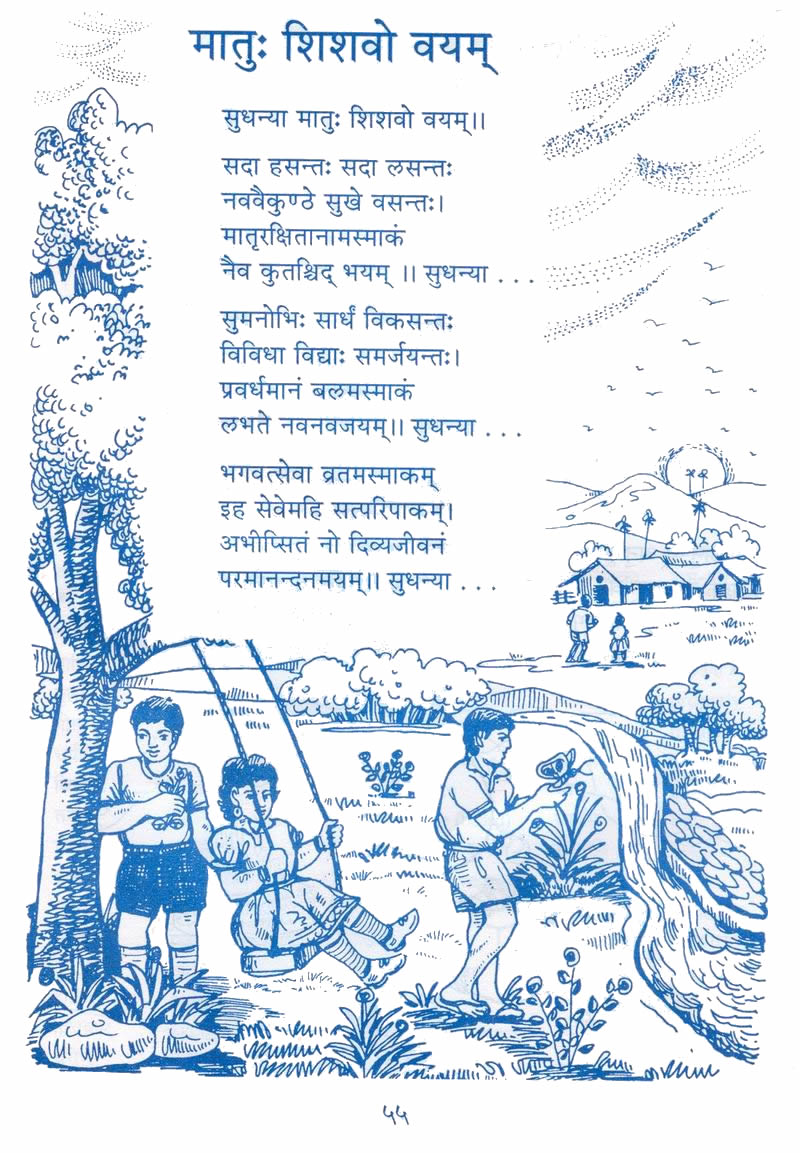 मातुः शिशवो वयम्
सुधन्या मातुः शिशवो वयम्॥
सदा हसन्तः सदा लसन्तः
नववैकुण्ठे सुखे वसन्तः।
मातृरक्षितानामस्माकं
नैव कुतश्चिद् भयम् ॥ सुधन्या . . .
सुमनोभिः सार्धं विकसन्तः
विविधा विद्याः समर्जयन्तः।
प्रवर्धमानं बलमस्माकं
लभते नवनवजयम्॥ सुधन्या . . .
भगवत्सेवा व्रतमस्माकम्
इह सेवेमहि सत्परिपाकम्।
अभीप्सितं नो दिव्यजीवनं
परमानन्दनमयम्॥ सुधन्या . . .
५५